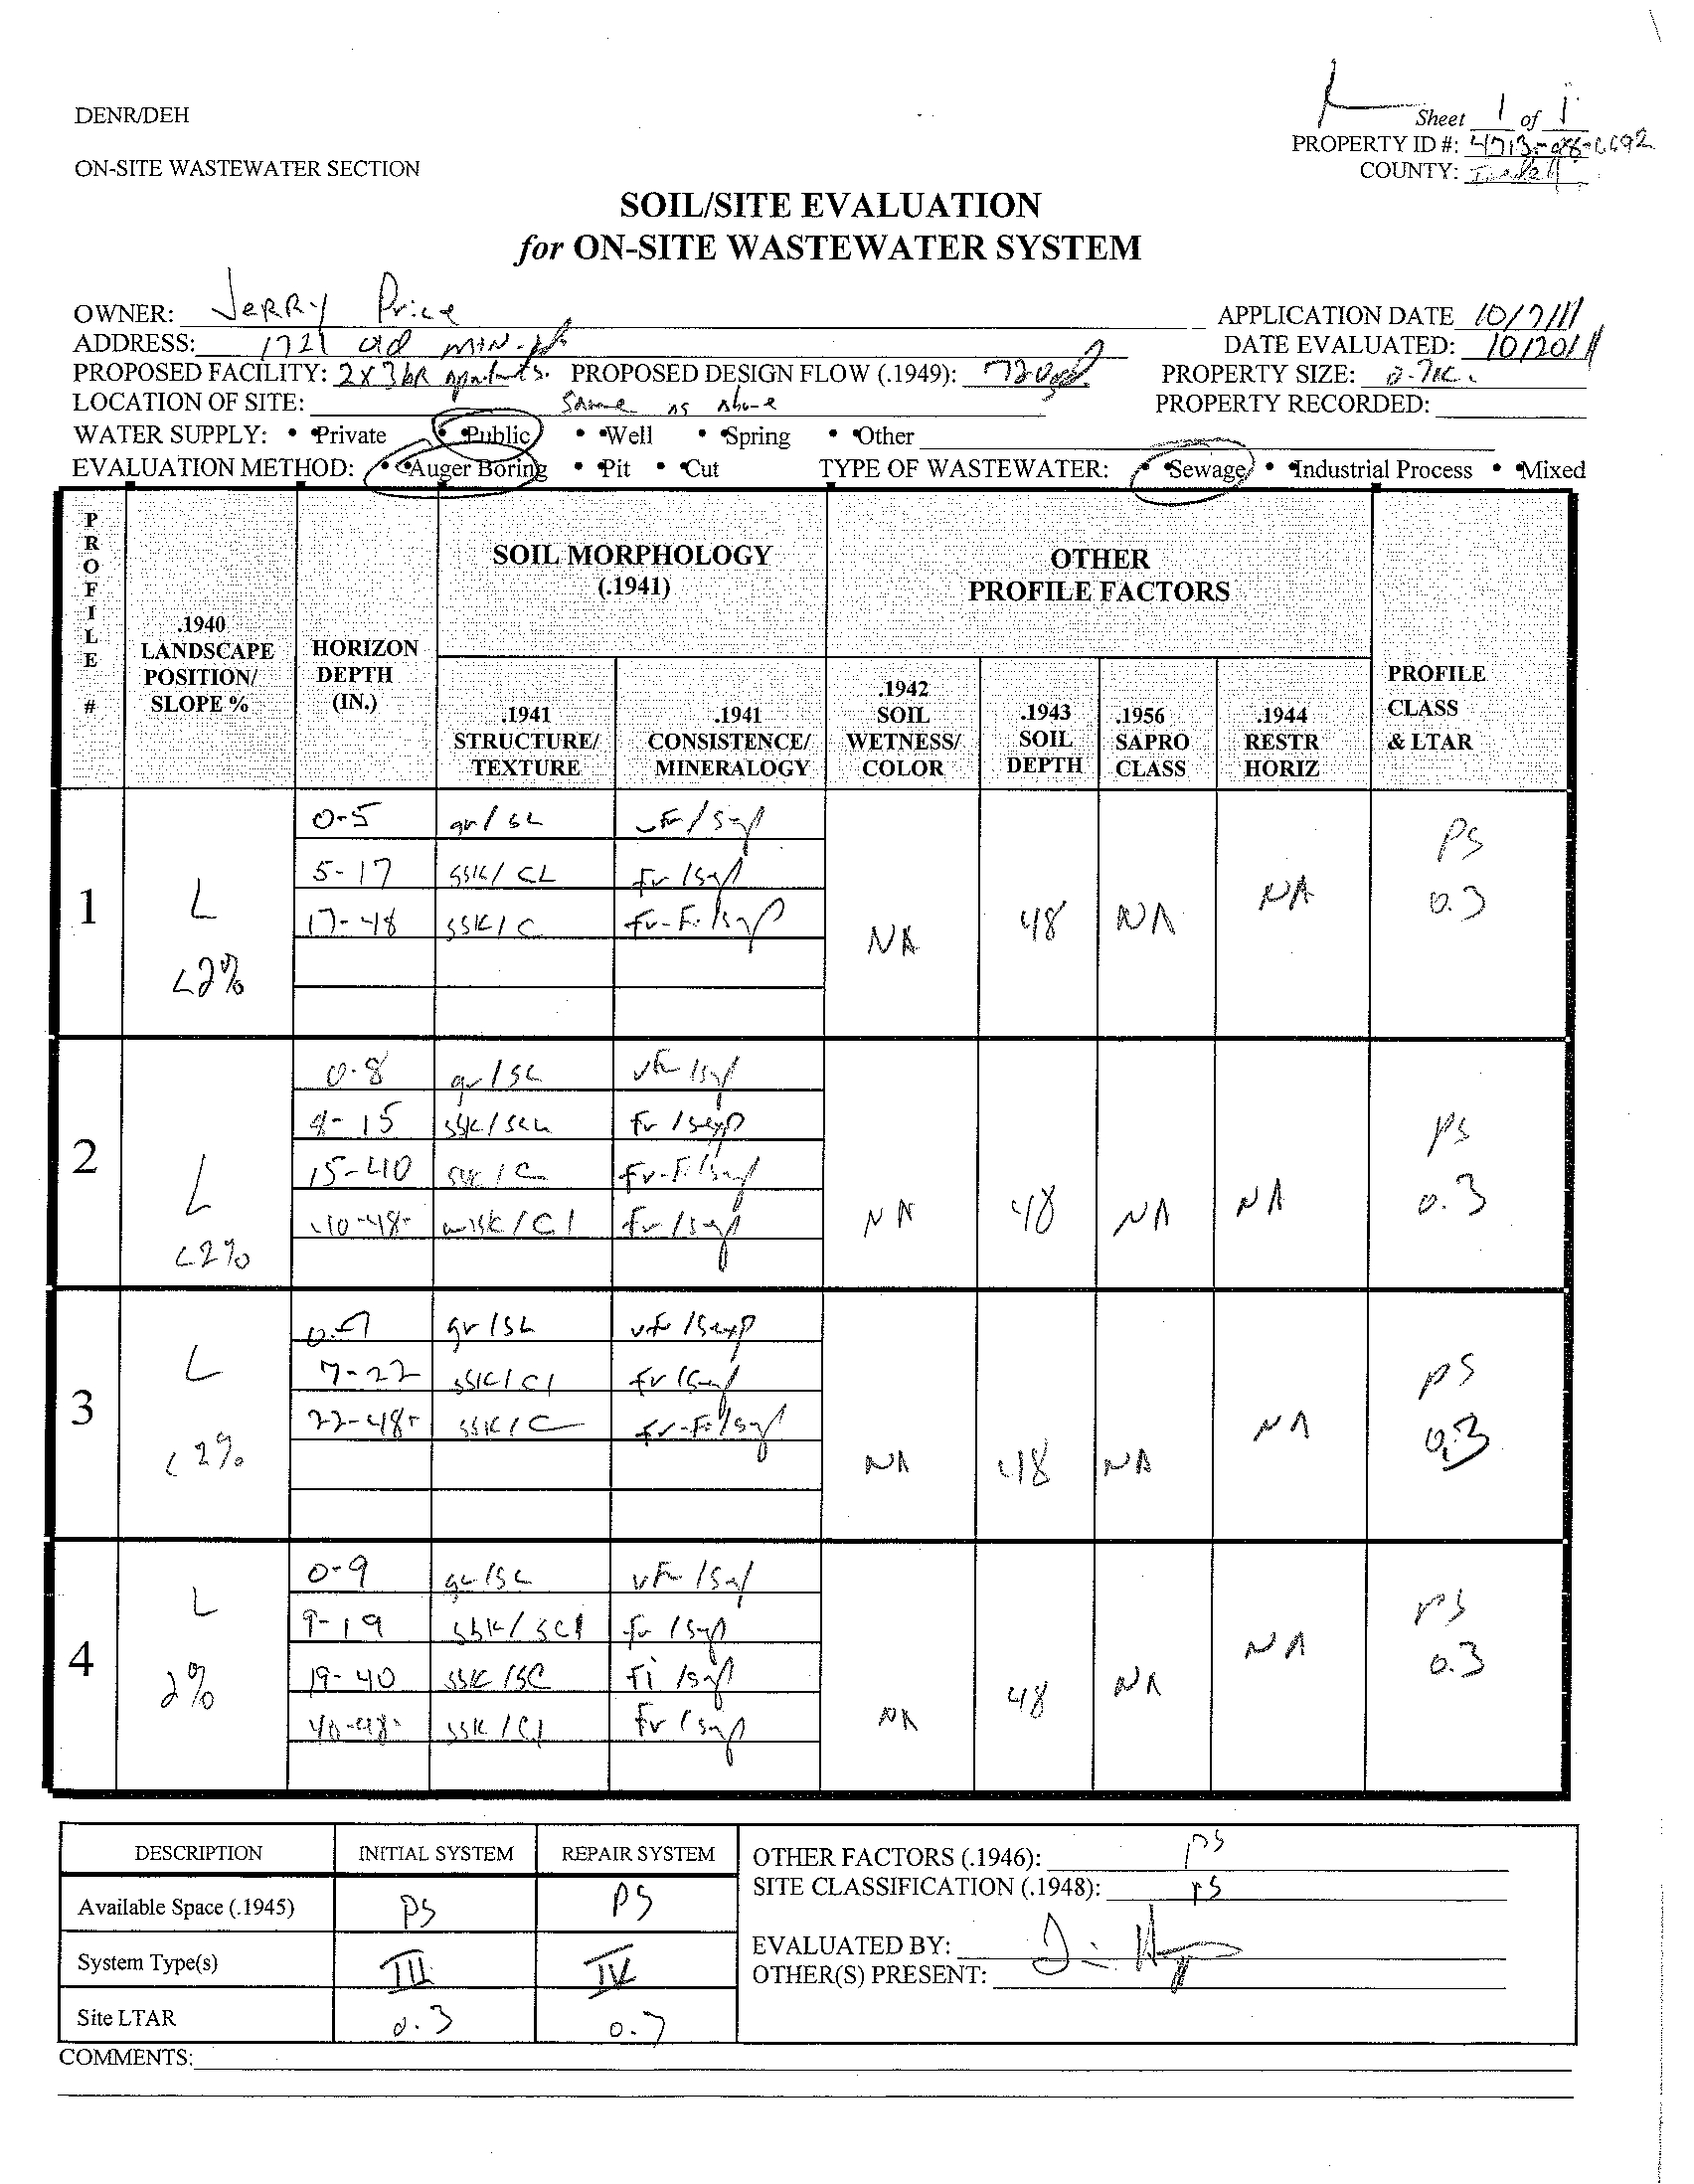 DENR/DEH
Sheet 1 of 1
PROPERTY ID #:
ON-SITE WASTEWATER SECTION
COUNTY: Iredell
SOIL/SITE EVALUATION
for ON-SITE WASTEWATER SYSTEM
OWNER: Jerry Price APPLICATION DATE 10/7/11
ADDRESS: 1721 old DATE EVALUATED: 10/20/11
PROPOSED FACILITY: 2x3br PROPOSED DESIGN FLOW (.1949): 720gpd PROPERTY SIZE:
LOCATION OF SITE: same as above PROPERTY RECORDED:
WATER SUPPLY: • •Private • •Public • •Well • •Spring • •Other
EVALUATION METHOD: • •Auger Boring • •Pit • •Cut TYPE OF WASTEWATER: • •Sewage • •Industrial Process • •Mixed
PROFILE #
.1940 LANDSCAPE POSITION/ SLOPE %
HORIZON DEPTH (IN.)
SOIL MORPHOLOGY (.1941)
.1941 STRUCTURE/ TEXTURE
.1941 CONSISTENCE/ MINERALOGY
OTHER PROFILE FACTORS
.1942 SOIL WETNESS/ COLOR
.1943 SOIL DEPTH
.1956 SAPRO CLASS
.1944 RESTR HORIZ
PROFILE CLASS & LTAR
1 L <2% NA 48 NA NA PS 0.3
0-5 gr/SL vfr/sexp
5-17 SBK/CL fr/sexp
17-48 SBK/C fr-fi/sexp
2 L <2% NA 48 NA NA PS 0.3
0-8 gr/SL vfr/sexp
8-15 SBK/SCL fr/sexp
15-40 SBK/C fr-fi/sexp
40-48 fr/sexp
3 L <2% NA 48 NA NA PS 0.3
0-7 gr/SL vfr/sexp
7-22 SBK/Cl fr/sexp
22-48 SBK/C fr-fi/sexp
4 L 2% NA 48 NA NA PS 0.3
0-9 gr/SL vfr/sexp
9-19 SBK/SCl fr/sexp
19-40 SBK/SC fi/sexp
40-48 SBK/Cl fr/sexp
DESCRIPTION INITIAL SYSTEM REPAIR SYSTEM
Available Space (.1945) PS PS
System Type(s) III IV
Site LTAR 0.3
OTHER FACTORS (.1946): PS
SITE CLASSIFICATION (.1948): PS
EVALUATED BY:
OTHER(S) PRESENT:
COMMENTS: